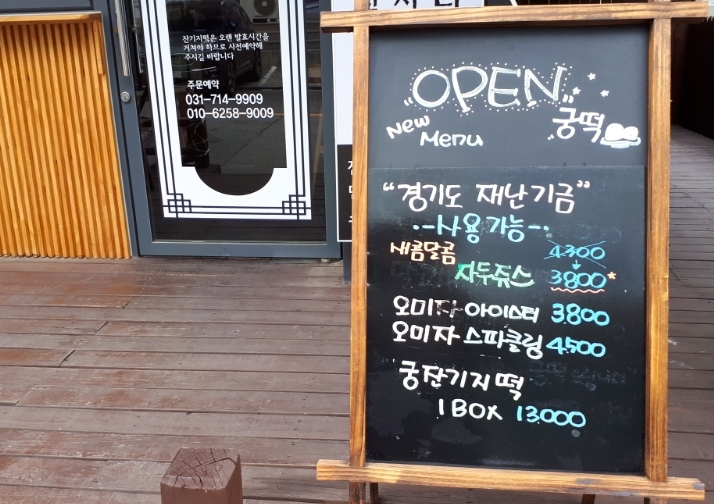 잔기지떡은 오랜 발효시간을
거쳐야 하므로 사전예약해
주시길 바랍니다
주문예약
031-714-9909
010-6258-9009
OPEN
궁떡
New
Menu
"경기도 재난기금"
·-사용가능-·
새콤달콤
4300
자두쥬스 3800*
오미자 아이스티 3.800
오미자 스파클링 4.500
궁잔기지떡
1 BOX 13000